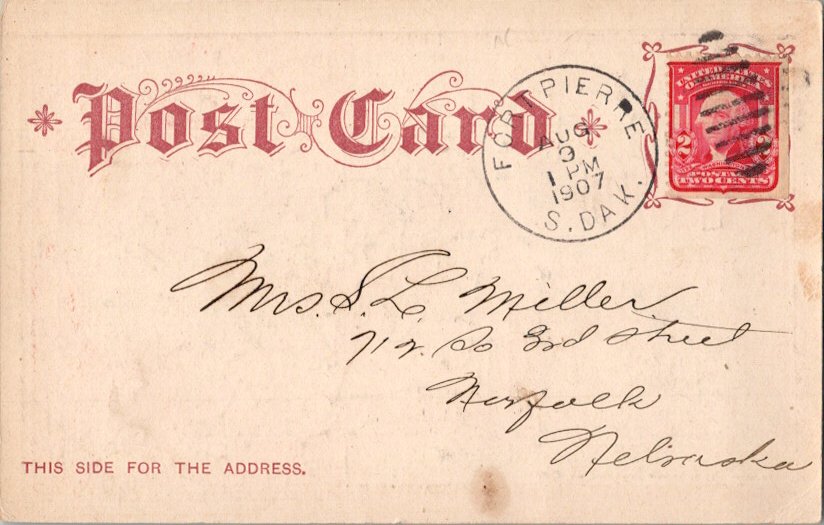 Post Card
FORT PIERRE
AUG
3
1 PM
1907
S. DAK.
UNITED STATES
OF AMERICA
2 2
POSTAGE
TWO CENTS
Mrs. S. L. Miller
712 So 3rd Street
Norfolk
Nebraska
THIS SIDE FOR THE ADDRESS.